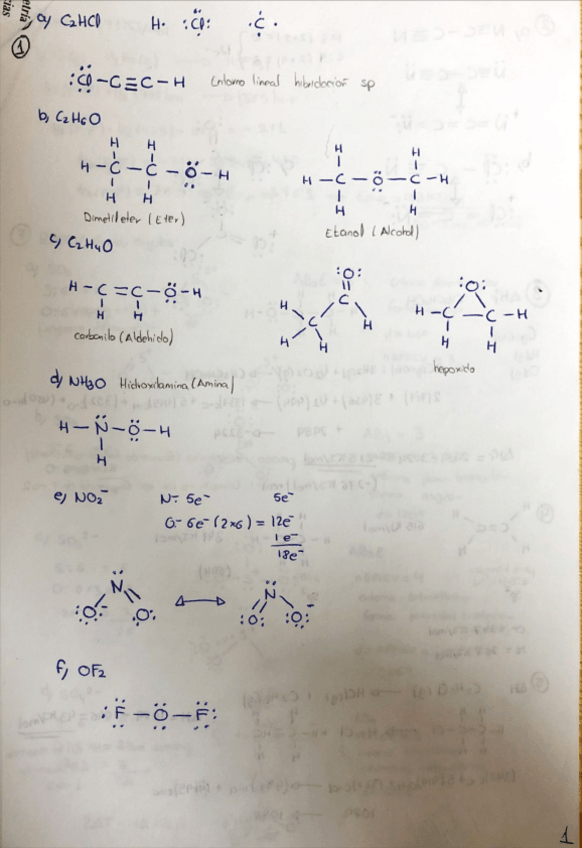 etria
ias
a) C2HCl H· :Cl: ·C·
①
:Cl-C≡C-H Entorno lineal hibridación sp
b) C2H6O
H H
H-C-C-O-H
H H
Dimetileter (Eter)
H H
H-C-O-C-H
H H
Etanol (Alcohol)
c) C2H4O
H-C=C-O-H
H H
carbonilo (Aldehido)
:O:
H C
C H
H H
:O:
H-C-C-H
H H
hepoxido
d) NH3O Hidroxilamina (Amina)
H-N-O-H
H
e) NO2⁻ N- 5e⁻ 5e⁻
O- 6e⁻ (2x6) = 12e⁻
1e⁻
18e⁻
N N
:O:⁻ O: ↔ :O: :O:⁻
f) OF2
:F-O-F:
1